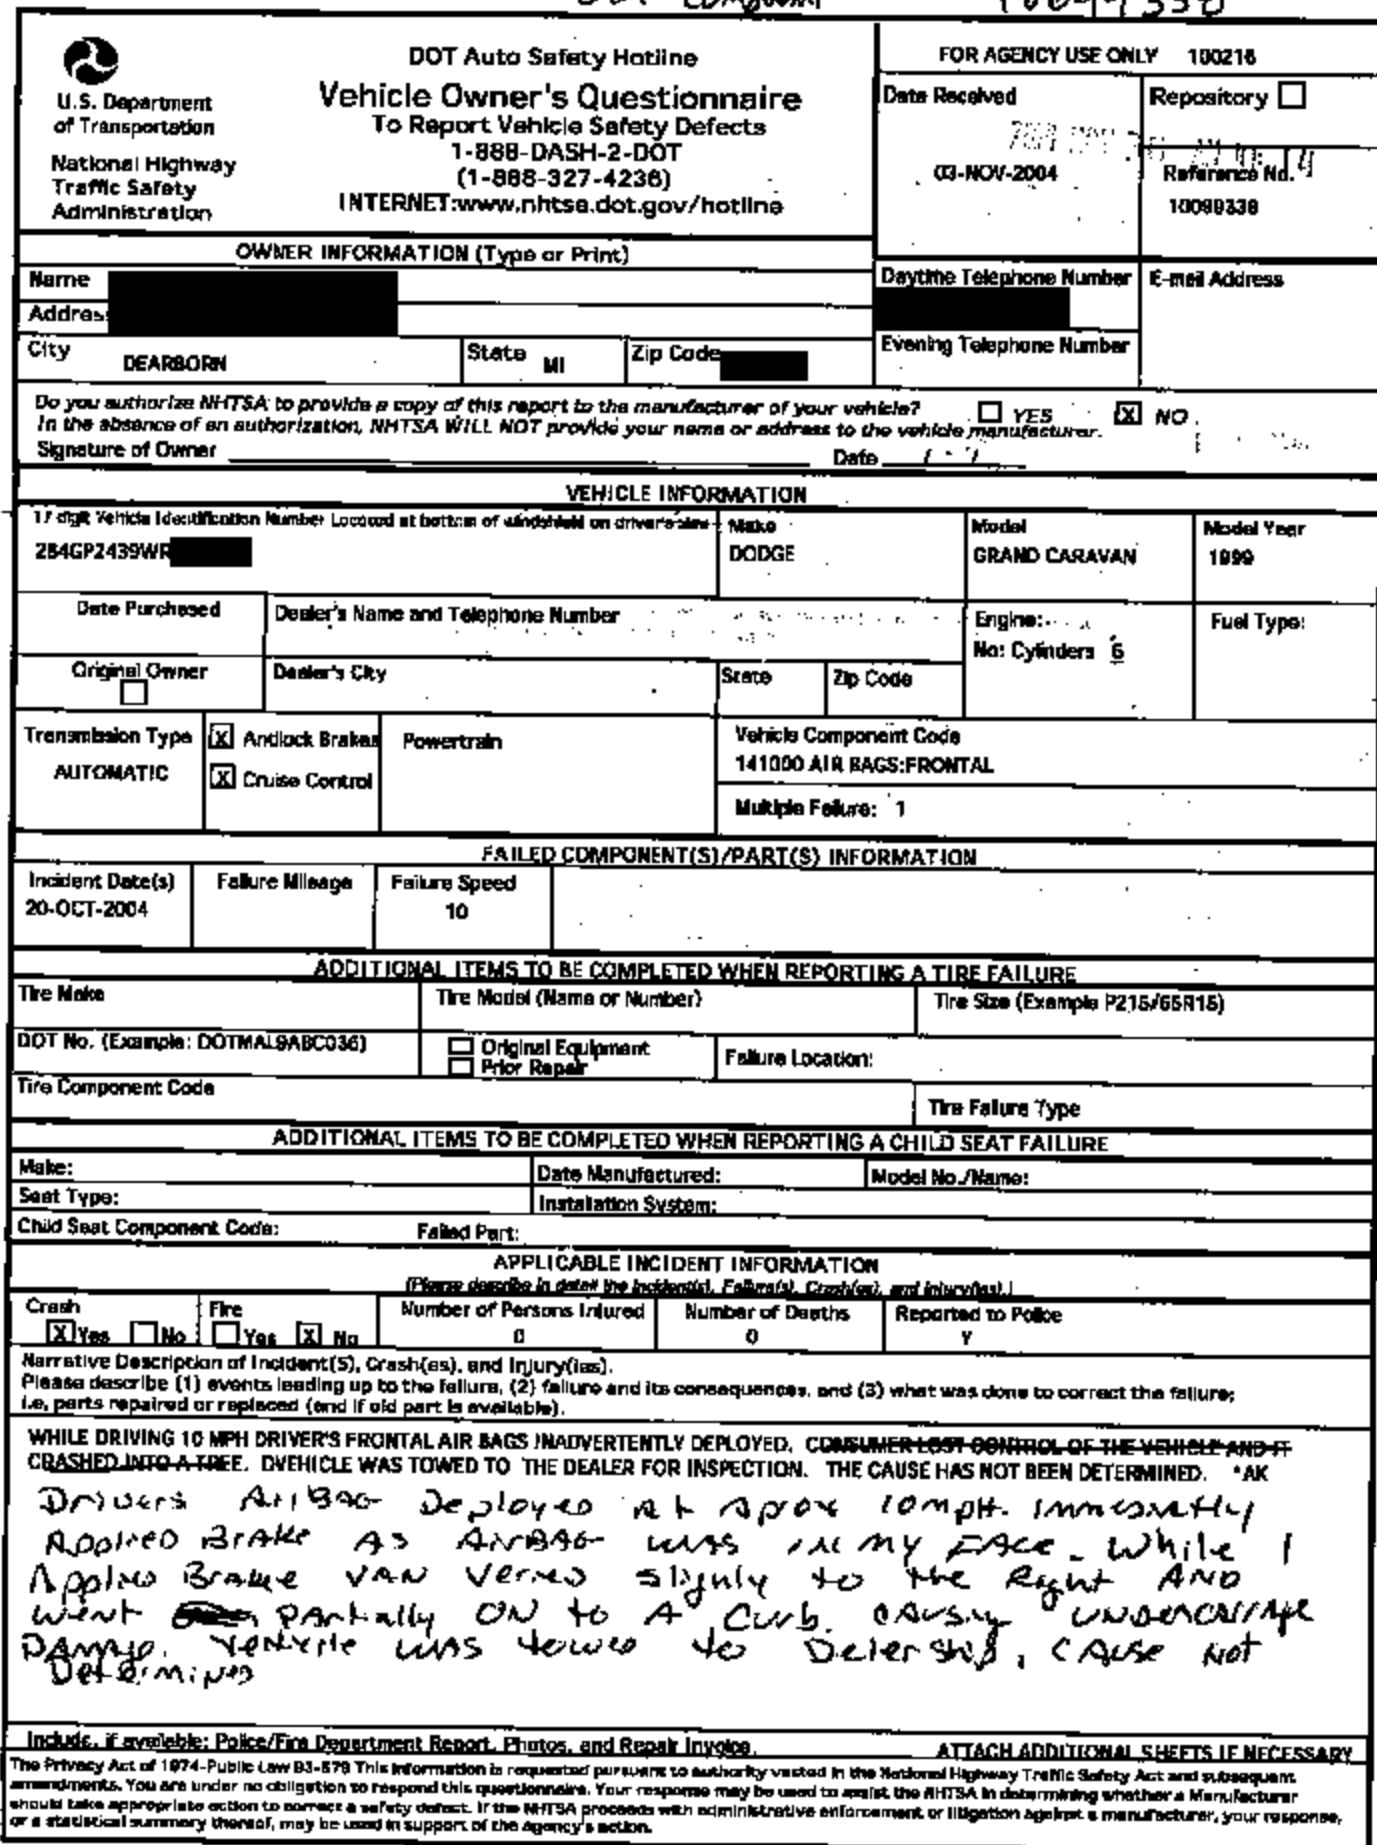 DOT Auto Safety Hotline
Vehicle Owner's Questionnaire
To Report Vehicle Safety Defects
1-888-DASH-2-DOT
(1-888-327-4236)
INTERNET:www.nhtsa.dot.gov/hotline
U.S. Department
of Transportation
National Highway
Traffic Safety
Administration
FOR AGENCY USE ONLY 100216
Date Received
03-NOV-2004
Repository
Reference No.
OWNER INFORMATION (Type or Print)
Name
Address
City DEARBORN State MI Zip Code
Daytime Telephone Number
E-mail Address
Evening Telephone Number
Do you authorize NHTSA to provide a copy of this report to the manufacturer of your vehicle? YES X NO
In the absence of an authorization, NHTSA WILL NOT provide your name or address to the vehicle manufacturer.
Signature of Owner Date
VEHICLE INFORMATION
17 digit Vehicle Identification Number Located at bottom of windshield on driver's side
2B4GP2439WR
Make
DODGE
Model
GRAND CARAVAN
Model Year
1999
Date Purchased
Dealer's Name and Telephone Number
Engine:
No: Cylinders 6
Fuel Type:
Original Owner
Dealer's City
State
Zip Code
Transmission Type
AUTOMATIC
X Antilock Brakes
X Cruise Control
Powertrain
Vehicle Component Code
141000 AIR BAGS:FRONTAL
Multiple Failure: 1
FAILED COMPONENT(S)/PART(S) INFORMATION
Incident Date(s)
20-OCT-2004
Failure Mileage
Failure Speed
10
ADDITIONAL ITEMS TO BE COMPLETED WHEN REPORTING A TIRE FAILURE
Tire Make
Tire Model (Name or Number)
Tire Size (Example P215/65R15)
DOT No. (Example: DOTMAL9ABC036)
Original Equipment
Prior Repair
Failure Location:
Tire Component Code
Tire Failure Type
ADDITIONAL ITEMS TO BE COMPLETED WHEN REPORTING A CHILD SEAT FAILURE
Make:
Date Manufactured:
Model No./Name:
Seat Type:
Installation System:
Child Seat Component Code:
Failed Part:
APPLICABLE INCIDENT INFORMATION
(Please describe in detail the incident(s), Failure(s), Crash(es), and injury(ies).)
Crash
X Yes No
Fire
Yes X No
Number of Persons Injured
0
Number of Deaths
0
Reported to Police
Y
Narrative Description of Incident(S), Crash(es), and Injury(ies).
Please describe (1) events leading up to the failure, (2) failure and its consequences, and (3) what was done to correct the failure;
i.e, parts repaired or replaced (and if old part is available).
WHILE DRIVING 10 MPH DRIVER'S FRONTAL AIR BAGS INADVERTENTLY DEPLOYED. CONSUMER LOST CONTROL OF THE VEHICLE AND IT
CRASHED INTO A TREE. DVEHICLE WAS TOWED TO THE DEALER FOR INSPECTION. THE CAUSE HAS NOT BEEN DETERMINED. *AK
Drivers AirBag Deployed at Aprox 10mph. Immediatly
Applied Brake As AirBAG was in my FACE. While I
Applied Brake VAN Verred slighly to the Right AND
went partially ON to A Curb causing UNDERCARIAGE
DAMAGE. Vehicle was towed to Delership, CAUSE Not
Determined
Include, if available: Police/Fire Department Report, Photos, and Repair Invoice.
ATTACH ADDITIONAL SHEETS IF NECESSARY
The Privacy Act of 1974-Public Law 93-579 This information is requested pursuant to authority vested in the National Highway Traffic Safety Act and subsequent
amendments. You are under no obligation to respond this questionnaire. Your response may be used to assist the NHTSA in determining whether a Manufacturer
should take appropriate action to correct a safety defect. If the NHTSA proceeds with administrative enforcement or litigation against a manufacturer, your response,
or a statistical summary thereof, may be used in support of the Agency's action.